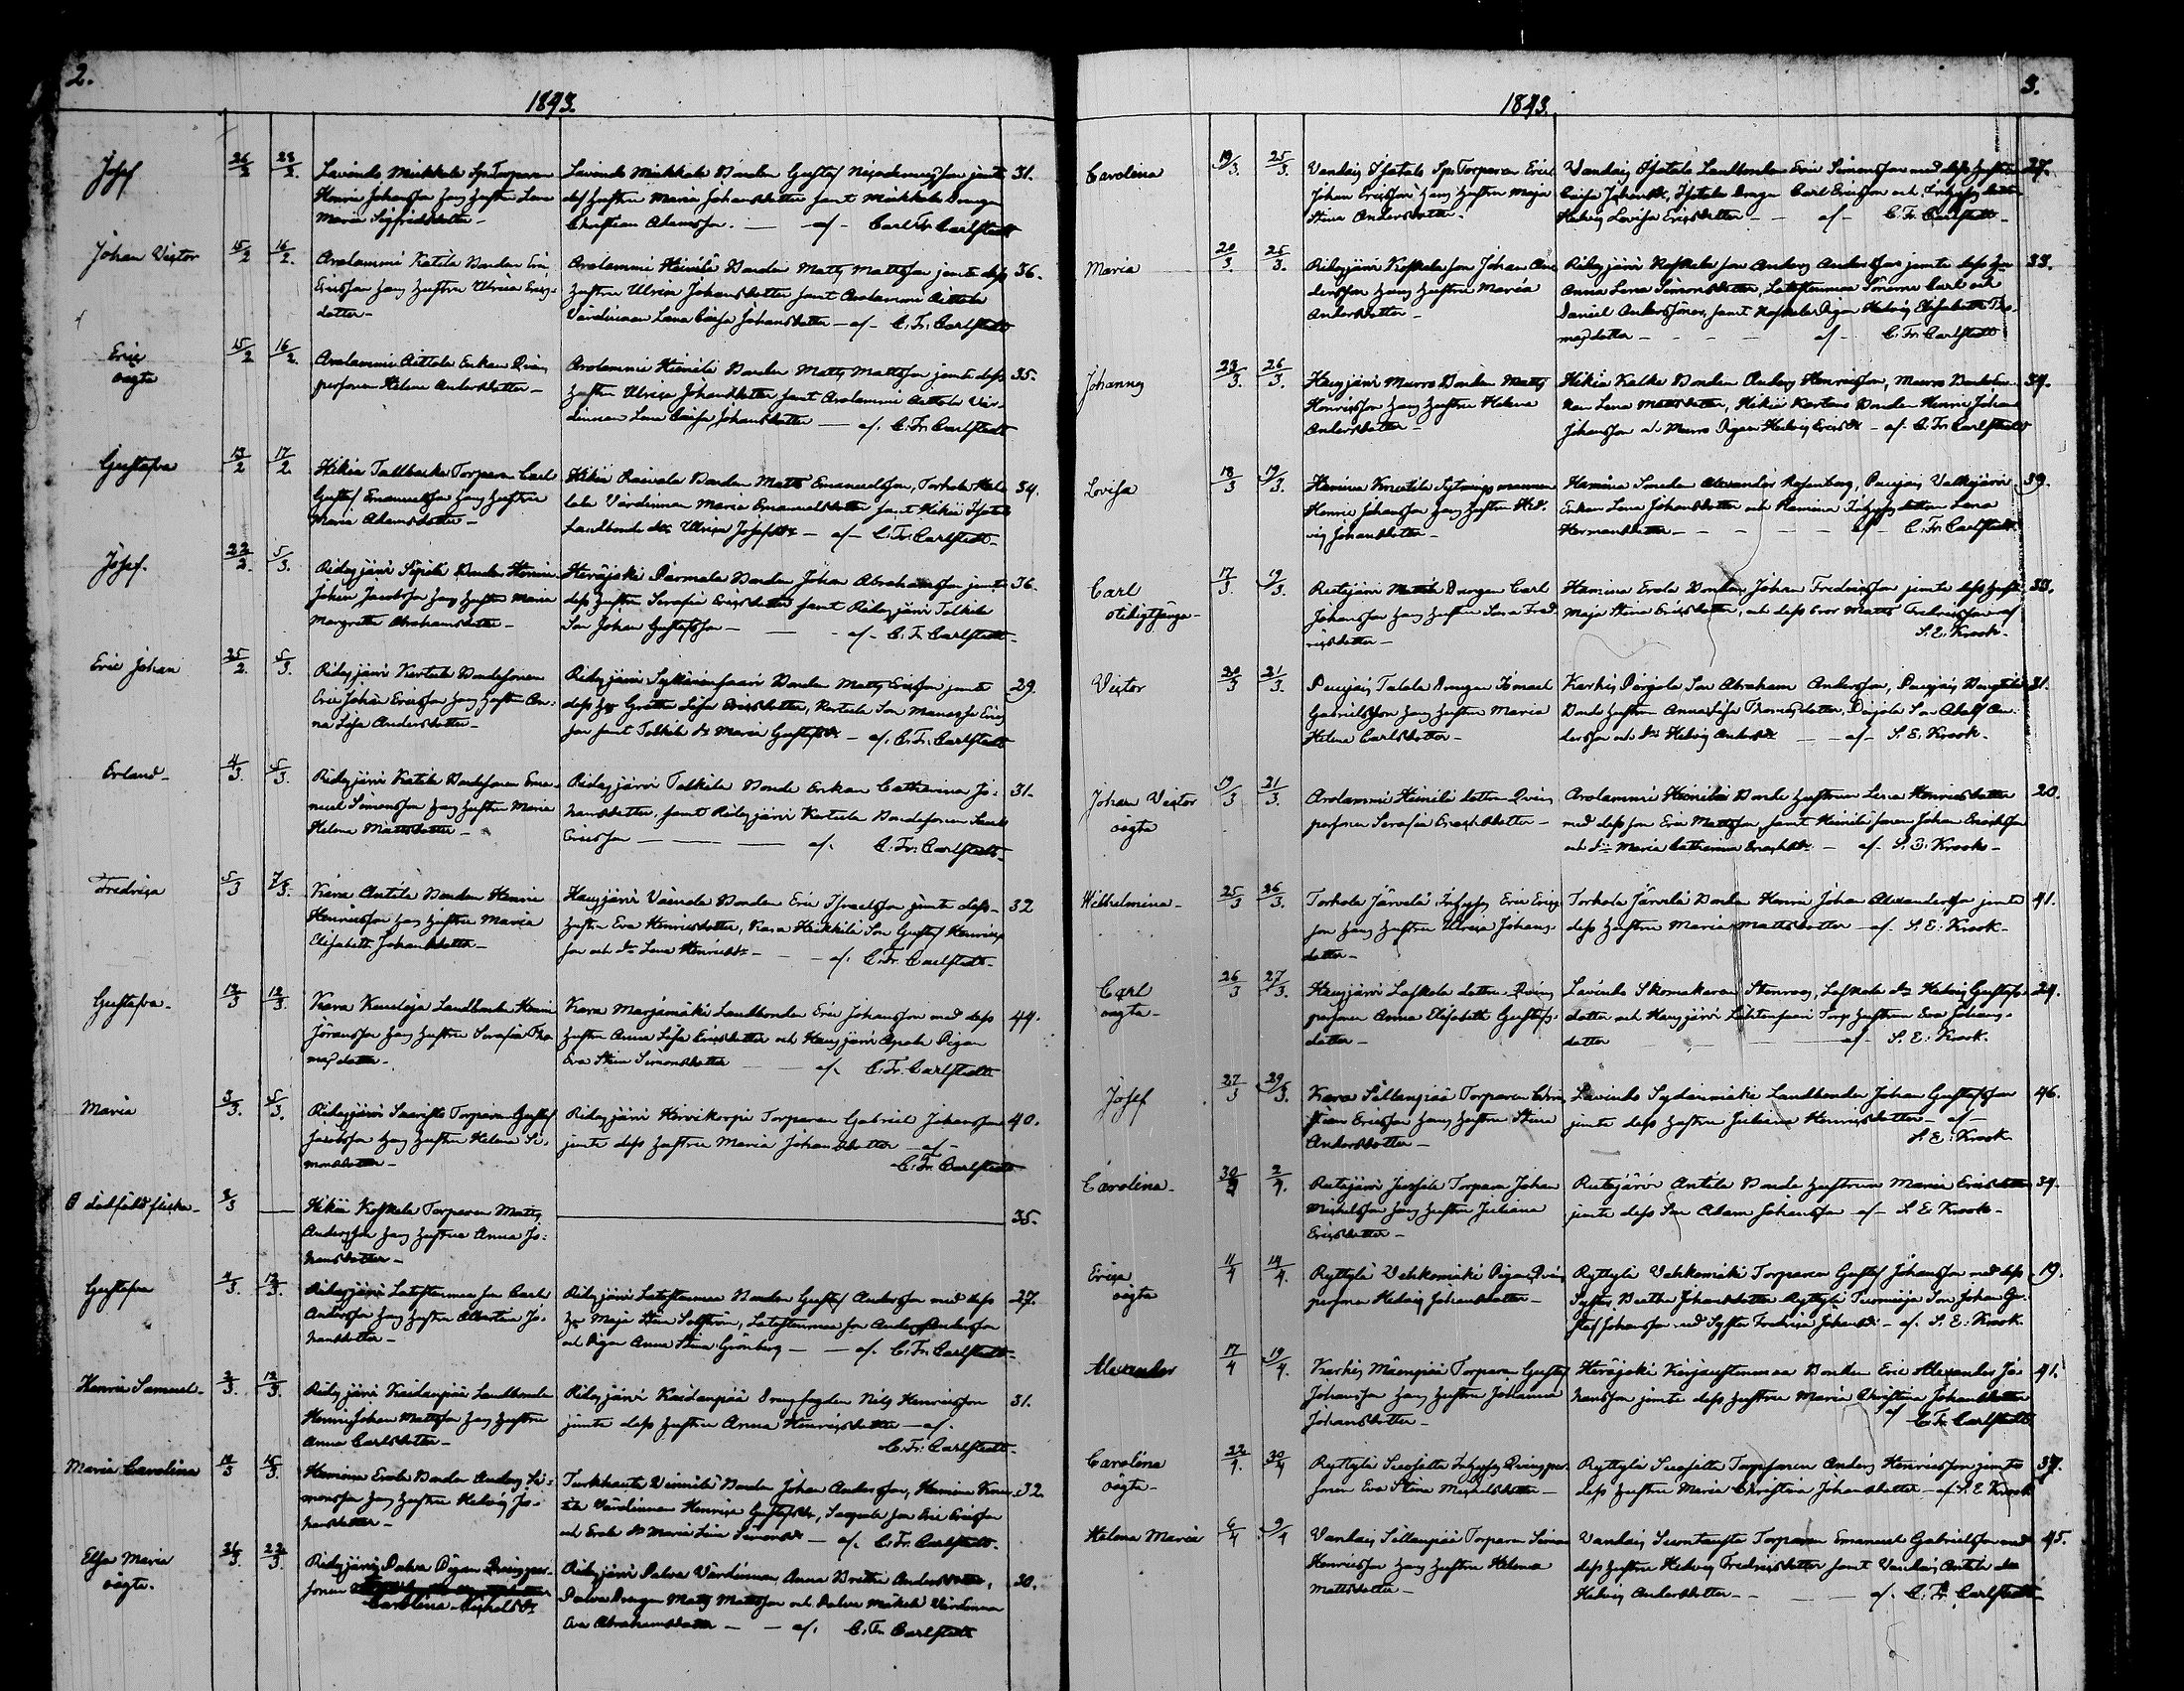 2.
1843.
Josef 26/2 28/2. Lavinto Mickkola Sp. Torparen Lavinto Mickkola Bonden Gustaf jemte 31.
Henric Johansson hans hustru Lena dess hustru Maria Johansdotter samt Mickkola Drengen
Maria Sigfridsdotter – Christian Adamsson. — af – Carl Fr. Carlstedt
Johan Victor 15/2 16/2. Arolammi Katila Bonden Eric Arolammi Heinilä Bonden Matts Mattsson jemte dess 36.
Ericsson hans hustru Ulrica Erics- hustru Ulrica Johansdotter samt Arolammi Aittola
dotter – Värdinnan Lena Caisa Johansdotter – af – C. Fr. Carlstedt
Eric 15/2 16/2. Arolammi Aittola Enkan Qvins Arolammi Heinilä Bonden Matts Mattsson jemte dess 35.
oägta personen Helena Andersdotter – hustru Ulrica Johansdotter samt Arolammi Aittola Vär-
dinnan Lena Caisa Johansdotter — af. C. Fr. Carlstedt
Gustafva 13/2 17/2 Hikiä Tallbacka Torparen Carl Hikiä Raivala Bonden Matts Emanuelsson, Torhola 34.
Gustaf Emanuelsson hans hustru Värdinnan Maria Emanuelsdotter samt Hikiä
Maria Adamsdotter – Landbonde dr Ulrica Josefsdr – af – C. Fr. Carlstedt –
Josef. 22/2. 5/3. Ridasjärvi Bonden Henric Heräjoki Parmala Bonden Johan Abrahamsson jemte 36.
Johan Jacobsson hans hustru Maria dess hustru Serafia Ericsdotter samt Ridasjärvi Tolkila
Margretha Abrahamsdotter – Son Johan Gustafsson – – af – C. Fr. Carlstedt –
Eric Johan 25/2. 5/3. Ridasjärvi Kertula Bondesonen Ridasjärvi Bonden Matts Ericsson jemte 29.
Eric Johan Ericsson hans hustru An- dess hu Greta Lisa Ericsdotter, Kertula Son Manasse Erics
na Lisa Andersdotter – son samt Tolkila dr Maria Gustafsdr – af. C. Fr. Carlstedt
Erland – 4/3. 5/3. Ridasjärvi Katila Bondesonen Ema- Ridasjärvi Tolkila Bonde Enkan Catharina Jo- 31.
nuel Simonsson hans hustru Maria hansdotter, samt Ridasjärvi Kertula Bondesonen
Helena Mattsdotter – Ericsson — — af. C. Fr. Carlstedt –
Fredrica 5/3 7/3. Kara Antila Bonden Henric Hausjärvi Bonden Eric Israelsson jemte dess 32
Henricsson hans hustru Maria hustru Eva Henricsdotter, Kara Heikkilä Son Gustaf Henrics
Elisabeth Johansdotter – son och dr Lena Henricsdr – – af. C. Fr. Carlstedt –
Gustafva – 12/3 12/3. Kara Landbonden Henric Kara Marjamäki Landbonden Eric Johansson med dess 44.
Jöransson hans hustru Serafia Tho- hustru Anna Lisa Ericsdotter och Hausjärvi Pigan
masdotter – Eva Stina Simonsdotter – – af. C. Fr. Carlstedt
Maria 3/3. 5/3. Ridasjärvi Torparen Gustaf Ridasjärvi Hirvikorpi Torparen Gabriel Johansson 40.
Jacobsson hans hustru Helena Si- jemte dess hustru Maria Johansdotter – af –
monsdotter – C. Fr. Carlstedt
dödfödd flicka – 8/3 — Hikiä Koskela Torparen Matts 35.
Andersson hans hustru Anna Jo-
hansdotter –
Gustafva 4/3. 12/3. Ridasjärvi Latostenmaa son Carl Ridasjärvi Latostenmaa Bonden Gustaf Andersson med dess 27.
Andersson hans hustru Albertina Jo- hu Maja Stina, Latostenmaa son Anders Andersson
hansdotter – och Pigan Anna Stina Grönberg – – af. C. Fr. Carlstedt –
Henric Samuel – 3/3. 12/3. Ridasjärvi Kaidanpää Landbonden Ridasjärvi Kaidanpää Nils Henricsson 31.
Henric Johan Mattsson hans hustru jemte dess hustru Anna Henricsdotter – af.
Anna Carlsdotter – C. Fr. Carlstedt –
Maria Carolina 14/3 15/3. Hamina Erola Bonden Anders Si- Turkhauta Bonden Johan Andersson, Hamina 32.
monsson hans hustru Hedvig Jo- Värdinnan Henrica Gustafsdr, son Eric Ericsson
hansdotter – och Erola dr Maria Lisa Simonsdr – af. C. Fr. Carlstedt.
Elsa Maria 21/3. 22/3 Ridasjärvi Palva Pigan Qvinsper- Ridasjärvi Palva Värdinnan Anna Britha Andersdotter, 30.
oägta. sonen Carolina Michelsdr Palva Drengen Matts Mattsson och Palva Värdinnan
Eva Abrahamsdotter – – af. C. Fr. Carlstedt
3.
1843.
Carolina 19/3. 25/3. Vantais Isotalo Sp. Torparen Eric Vantais Isotalo Landbonden Eric Simonsson med dess hustru 27.
Johan Ericsson hans hustru Maja Caisa Johansdr, Isotalo Drengen Carl Ericsson och dotter
Stina Andersdotter – Hedvig Lovisa Ericsdotter – – af – C. Fr. Carlstedt –
Maria 20/3. 25/3. Ridasjärvi Koskela son Johan An- Ridasjärvi Koskela son Anders Andersson jemte dess hu 33.
dersson hans hustru Maria Anna Lena Simonsdotter, Latostenmaa Sönerne Carl och
Andersdotter – Daniel Anderssöner, samt Koskela Pigan Hedvig Elisabeth Tho-
masdotter – – – – af – C. Fr. Carlstedt
Johannes 23/3. 26/3. Hausjärvi Murro Bonden Matts Hikiä Kalke Bonden Anders Henricsson, Murro 34.
Henricsson hans hustru Helena Lena Mattsdotter, Hikiä Bonden Henric Johan
Andersdotter – Johansson o. Murro Pigan Hedvig Ericsdr – af. C. Fr. Carlstedt
Lovisa 18/3 19/3. Hamina Sytningsmannen Hamina Smeden Alexander Rosenberg, Puujais Valkjärvi 39.
Henric Johansson hans hustru Hed- Enkan Lena Johansdotter och Hamina dottern Lena
vig Johansdotter – Hermansdotter – – – – af – C. Fr. Carlstedt.
Carl 17/3. 19/3. Rutajärvi Drengen Carl Hamina Erola Bonden Johan Fredricsson jemte dess hustru 33.
otidigtjänga – Johansson hans hustru Lena Fred- Maja Stina Ericsdotter, och dess bror Matts Fredricsson af
ricsdotter – S. E. Krook –
Victor 20/3 21/3. Puujais Talola Drengen Ismael Karhis Pirjola Son Abraham Andersson, Puujais 31.
Gabrielsson hans hustru Maria Bonde hustrun Anna Lisa Thomasdotter, Pirjola Son Adolf An-
Helena Carlsdotter – dersson och dr Hedvig Andersdr – af – S. E. Krook –
Johan Victor 19/3 21/3. Arolammi Heinilä dotter Qvins Arolammi Heinilä Bonde hustrun Lena Henricsdotter 20.
oägta personen Serafia Ericsdotter – med dess son Eric Mattsson, samt Heinilä sonen Johan Ericsson
och dr Maria Catharina Ericsdr – af – S. E. Krook –
Wilhelmina – 25/3 26/3. Torhola Järvelä Eric Erics Torhola Järvelä Bonden Henric Johan Alexandersson jemte 41.
son hans hustru Ulrica Johans- dess hustru Maria Mattsdotter – af. S. E. Krook –
dotter –
Carl 26/3 27/3. Hausjärvi Laskola dotter Qvins Lavinto Skomakaren Stenroos, Laskola dr Hedvig Gustafs- 24.
oägta – personen Anna Elisabeth Gustafs- dotter och Hausjärvi Torp hustrun Eva Johans-
dotter – dotter af – S. E. Krook.
Josef 27/3 29/3. Kara Sillanpää Torparen Chris Lavinto Sydänmäki Landbonden Johan Gustafsson 46.
tian Ericsson hans hustru Stina jemte dess hustru Juliana Henricsdotter – af
Andersdotter – S. E. Krook
Carolina – 30/3 2/4. Rutajärvi Torparen Johan Rutajärvi Antila Bonde hustrun Maria Ericsdotter 34.
Michelsson hans hustru Juliana jemte dess Son Adam Johansson – af – S. E. Krook –
Ericsdotter –
Erica 11/4 14/4. Ryttylä Vehkomäki Pigan Qvins Ryttylä Vehkomäki Torparen Gustaf Johansson med dess 19.
oägta personen Hedvig Johansdotter – Syster Beatha Johansdotter Ryttylä Son Johan Gu-
staf Johansson och Syster Fredrica Johansdr – af. S. E. Krook
Alexander 17/4 19/4. Karhis Torparen Gustaf Heräjoki Bonden Eric Alexander Jo- 41.
Johansson hans hustru Johanna hansson jemte dess hustru Maria Christina Johansdotter
Johansdotter – af C. Fr. Carlstedt
Carolina 22/4. 30/4 Ryttylä Qvinsper- Ryttylä Torparen Anders Henricsson jemte 37.
oägta – sonen Eva Stina Michelsdotter – dess hustru Maria Christina Johansdotter – af S. E. Krook
Helena Maria 6/4 9/4 Vantais Sillanpää Torparen Simon Vantais Torparen Emanuel Gabrielsson med 45.
Henricsson hans hustru Helena dess hustru Hedvig Fredricsdotter samt Vantais Antila dr
Mattsdotter – Hedvig Andersdotter – – – af. C. Fr. Carlstedt